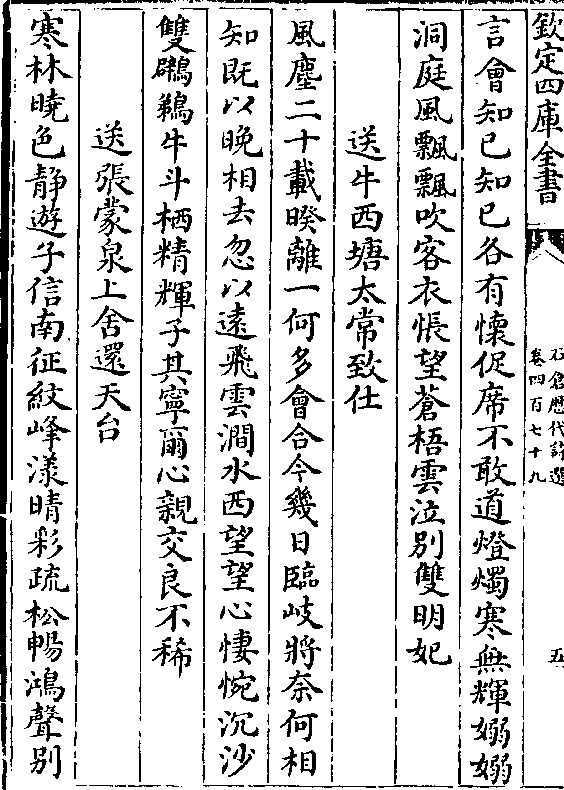 欽定四庫全書
石倉歷代詩選
卷四百七十九
五
言會知已知已各有懷促席不敢道燈燭寒無輝嫋嫋
洞庭風飄飄吹客衣悵望蒼梧雲泣別雙明妃
送牛西塘太常致仕
風塵二十載暌離一何多會合今幾日臨岐將奈何相
知既以晚相去忽以遠飛雲澗水西望望心悽惋沉沙
雙鸊鵜牛斗栖精輝子其寧爾心親交良不稀
送張蒙泉上舍還天台
寒林曉色静遊子信南征紋峰漾晴彩疏松暢鴻聲別